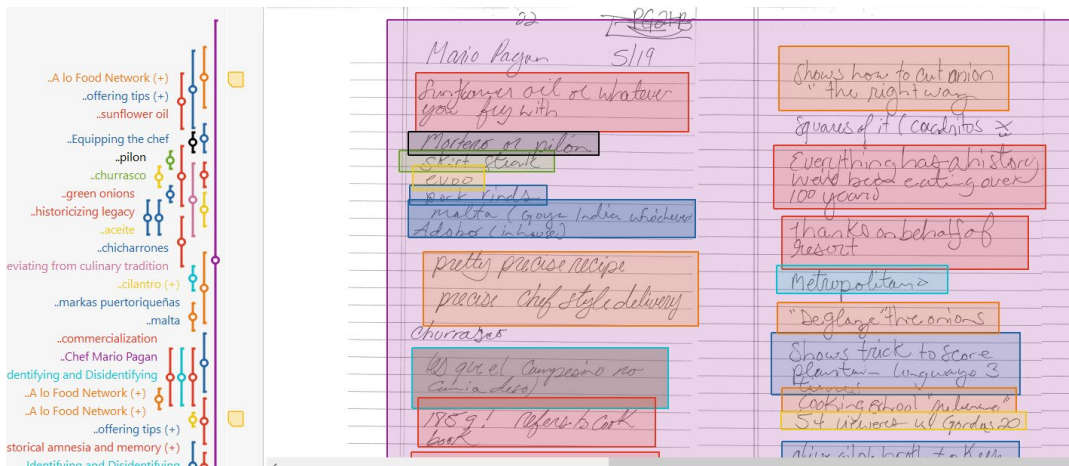 ..A lo Food Network (+)
..offering tips (+)
..sunflower oil
..Equipping the chef
..pilon
..churrasco
..green onions
..historicizing legacy
..aceite
..chicharrones
eviating from culinary tradition
..cilantro (+)
..markas puertoriqueñas
..malta
..commercialization
..Chef Mario Pagan
dentifying and Disidentifying
..A lo Food Network (+)
..A lo Food Network (+)
..offering tips (+)
storical amnesia and memory (+)
Identifying and Disidentifying
22
Mario Pagan 5/19
Sunflower oil or whatever
you fry with
Mortero or pilón
Skirt Steak
evoo
pork rinds
malta (Goya India whichever
Adobo (inhouse)
pretty precise recipe
precise Chef style delivery
Churrasco
(es que el Campesino no
comia eso)
1859! refers to cook
book
Shows how to cut onion
"the right way
Squares of it (cuadritos
Everything has a history
we've been eating over
100 years
thanks on behalf of
resort
Metropolitano
"Deglaze" the onions
Shows trick to score
plantain - lengthways 3
times
Cooking school
54 viewers w/ Gordas 20